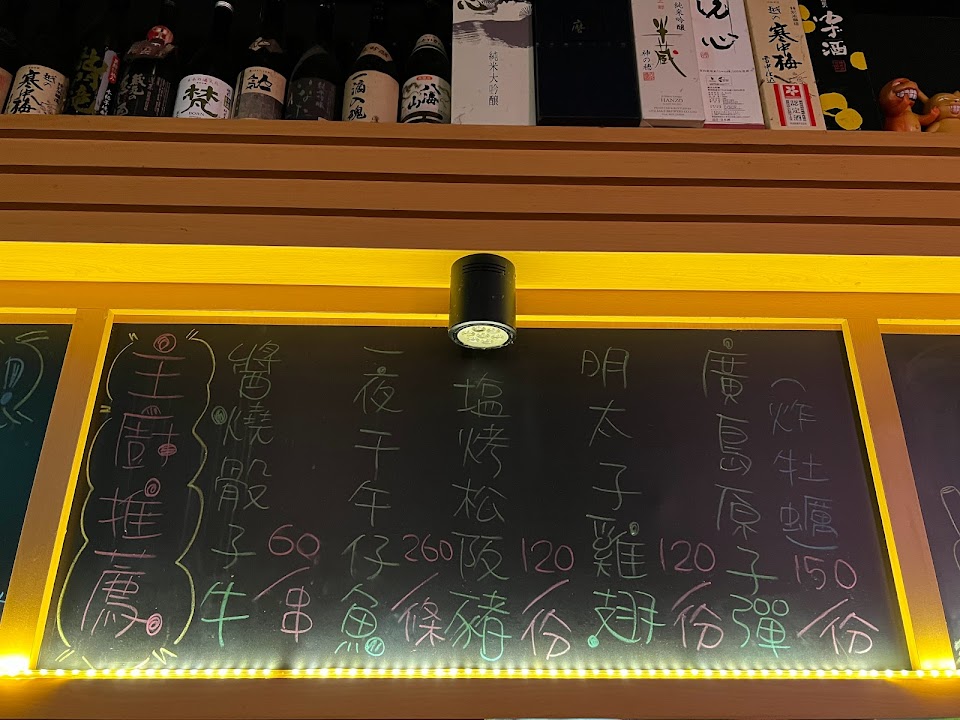 越の寒中梅
梵
八海山
純米大吟醸
純米吟醸
半蔵
神の穂
HANZO
越の寒中梅
ゆず酒
主廚推薦
醬燒骰子牛
60/串
一夜干午仔魚
260/條
塩烤松阪豬
120/份
明太子雞翅
120/份
廣島原子彈
(炸牡蠣)
150/份